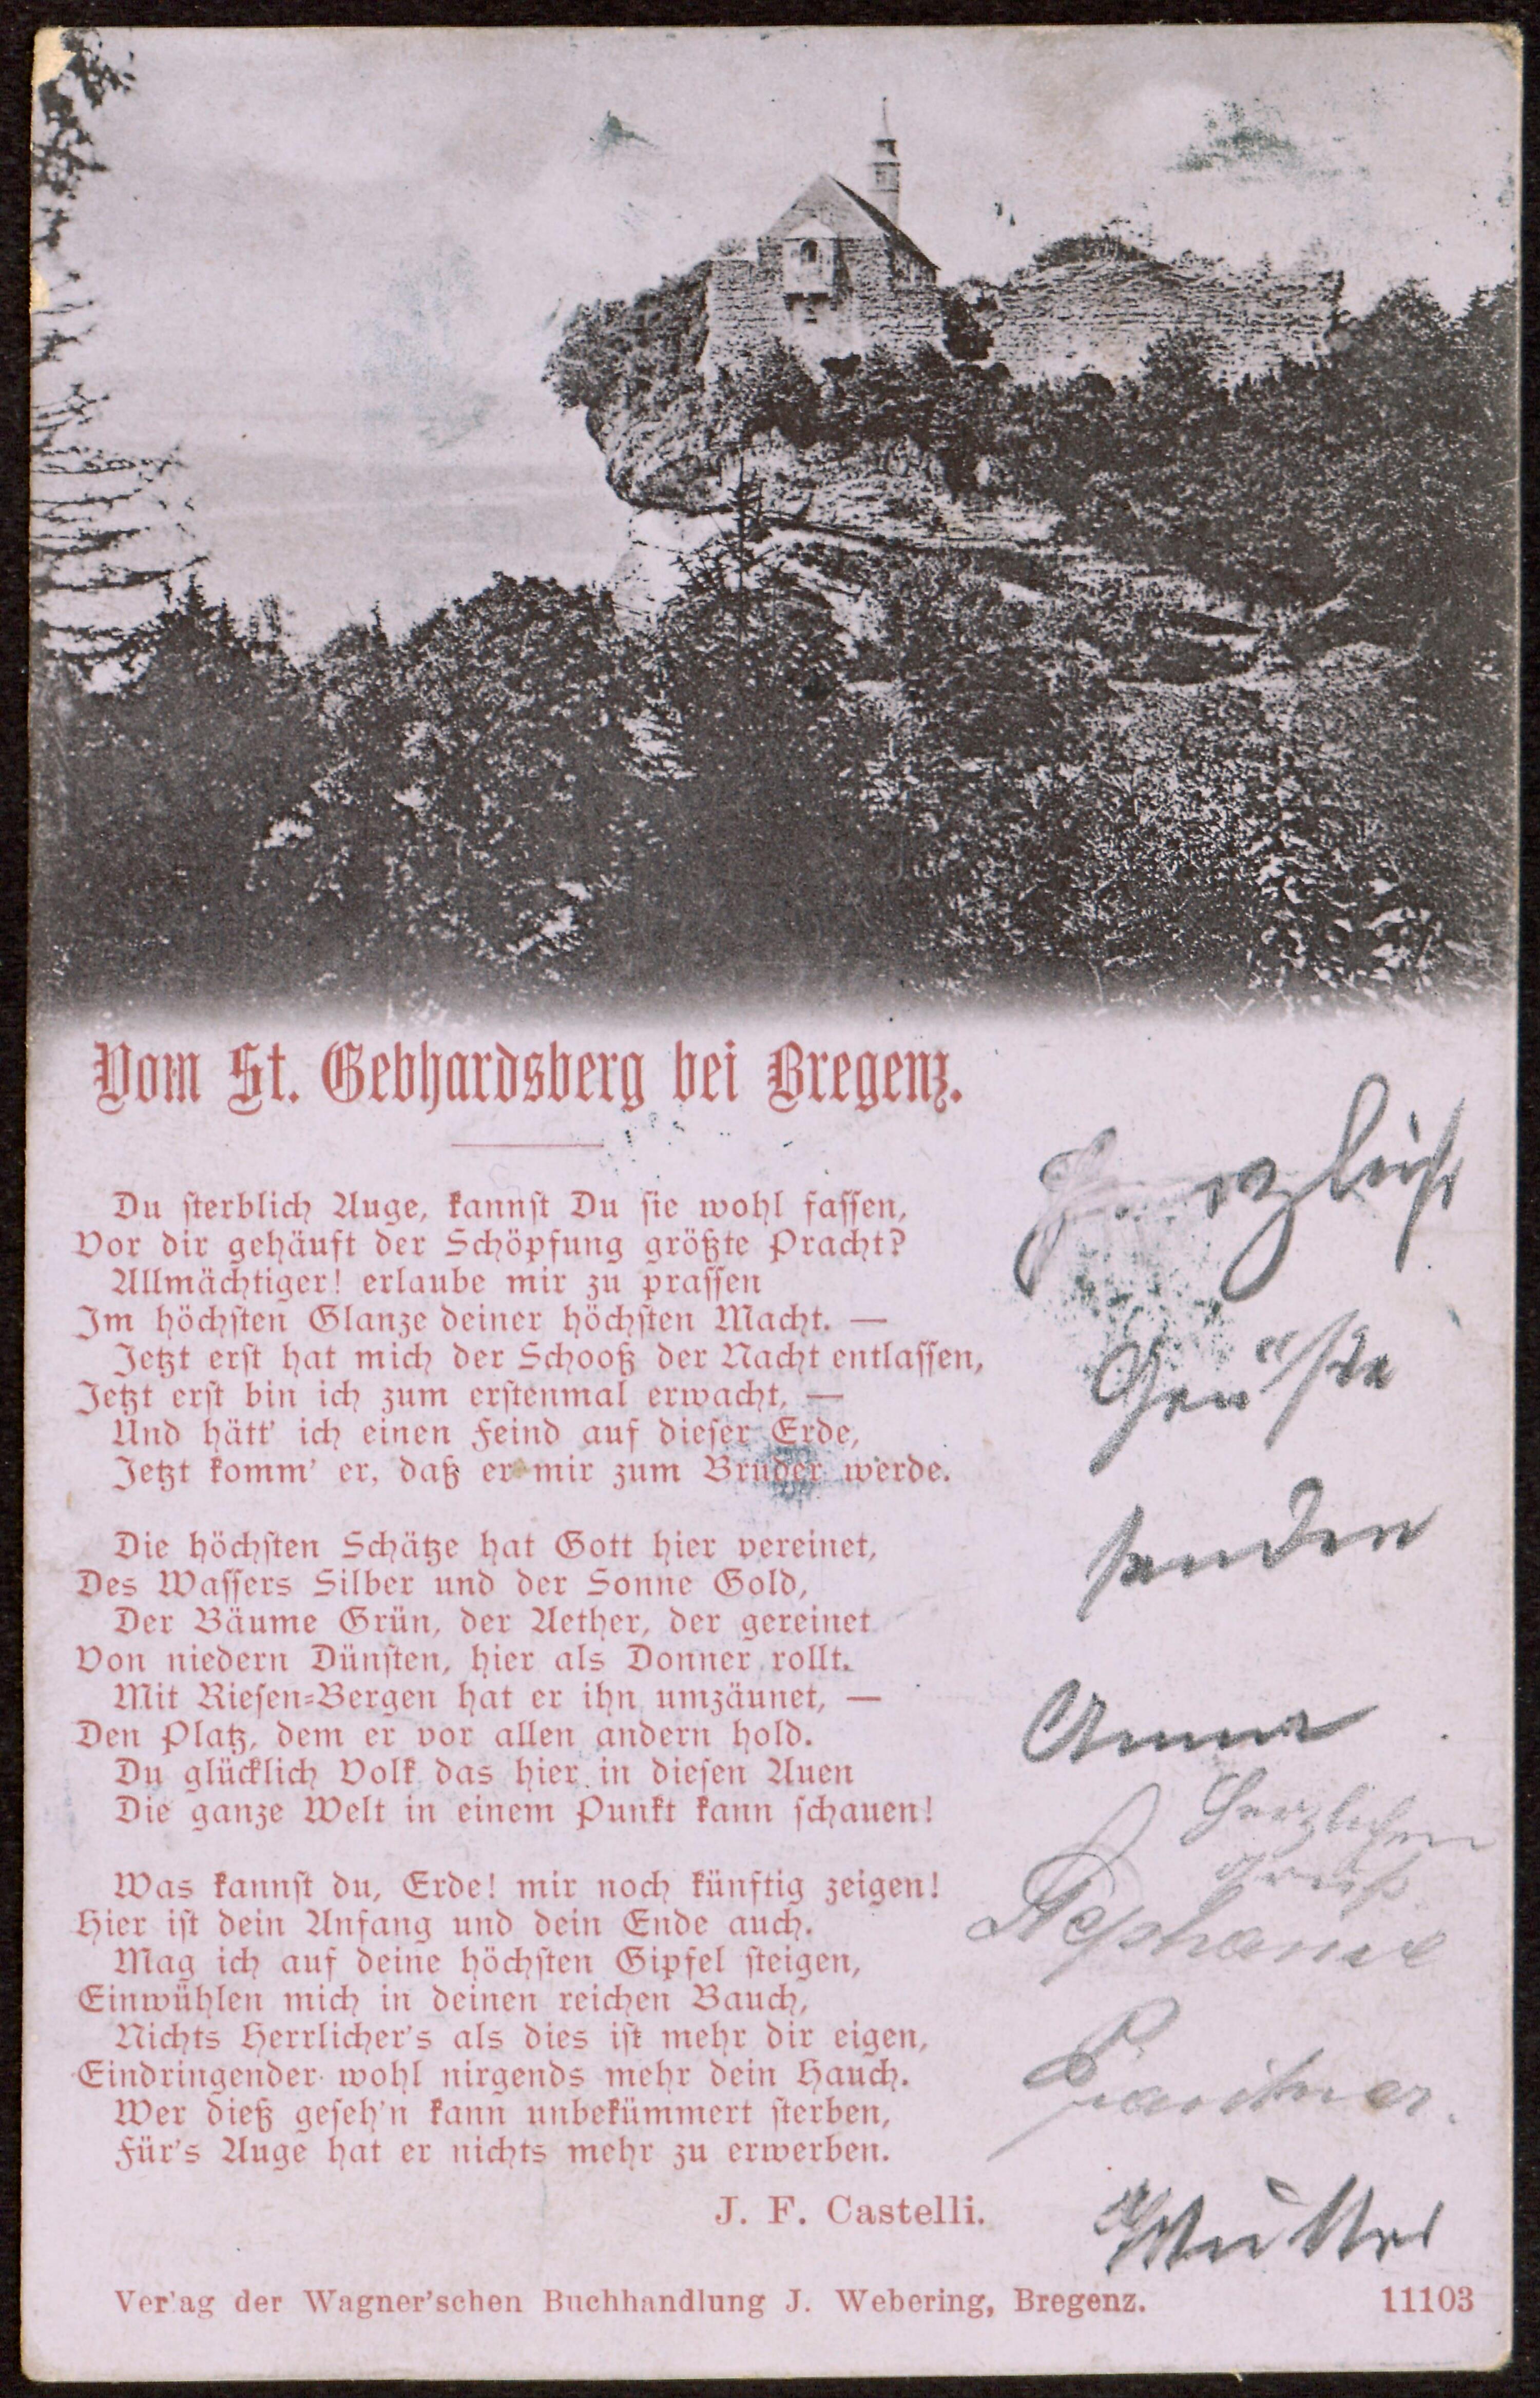 Vom St. Gebhardsberg bei Bregenz.
Du sterblich Auge, kannst Du sie wohl fassen,
Vor dir gehäuft der Schöpfung größte Pracht?
Allmächtiger! erlaube mir zu prassen
Im höchsten Glanze deiner höchsten Macht. —
Jetzt erst hat mich der Schooß der Nacht entlassen,
Jetzt erst bin ich zum erstenmal erwacht, —
Und hätt' ich einen Feind auf dieser Erde,
Jetzt komm' er, daß er mir zum Bruder werde.
Die höchsten Schätze hat Gott hier vereinet,
Des Wassers Silber und der Sonne Gold,
Der Bäume Grün, der Aether, der gereinet
Von niedern Dünsten, hier als Donner rollt.
Mit Riesen-Bergen hat er ihn umzäunet, —
Den Platz, dem er vor allen andern hold.
Du glücklich Volk das hier in diesen Auen
Die ganze Welt in einem Punkt kann schauen!
Was kannst du, Erde! mir noch künftig zeigen!
Hier ist dein Anfang und dein Ende auch.
Mag ich auf deine höchsten Gipfel steigen,
Einwühlen mich in deinen reichen Bauch,
Nichts Herrlicher's als dies ist mehr dir eigen,
Eindringender wohl nirgends mehr dein Hauch.
Wer dieß geseh'n kann unbekümmert sterben,
Für's Auge hat er nichts mehr zu erwerben.
J. F. Castelli.
Herzliche
Grüße
senden
Anna
Herzlichen
Gruß
Stephanie
Mutter
Ver'ag der Wagner'schen Buchhandlung J. Webering, Bregenz.
11103